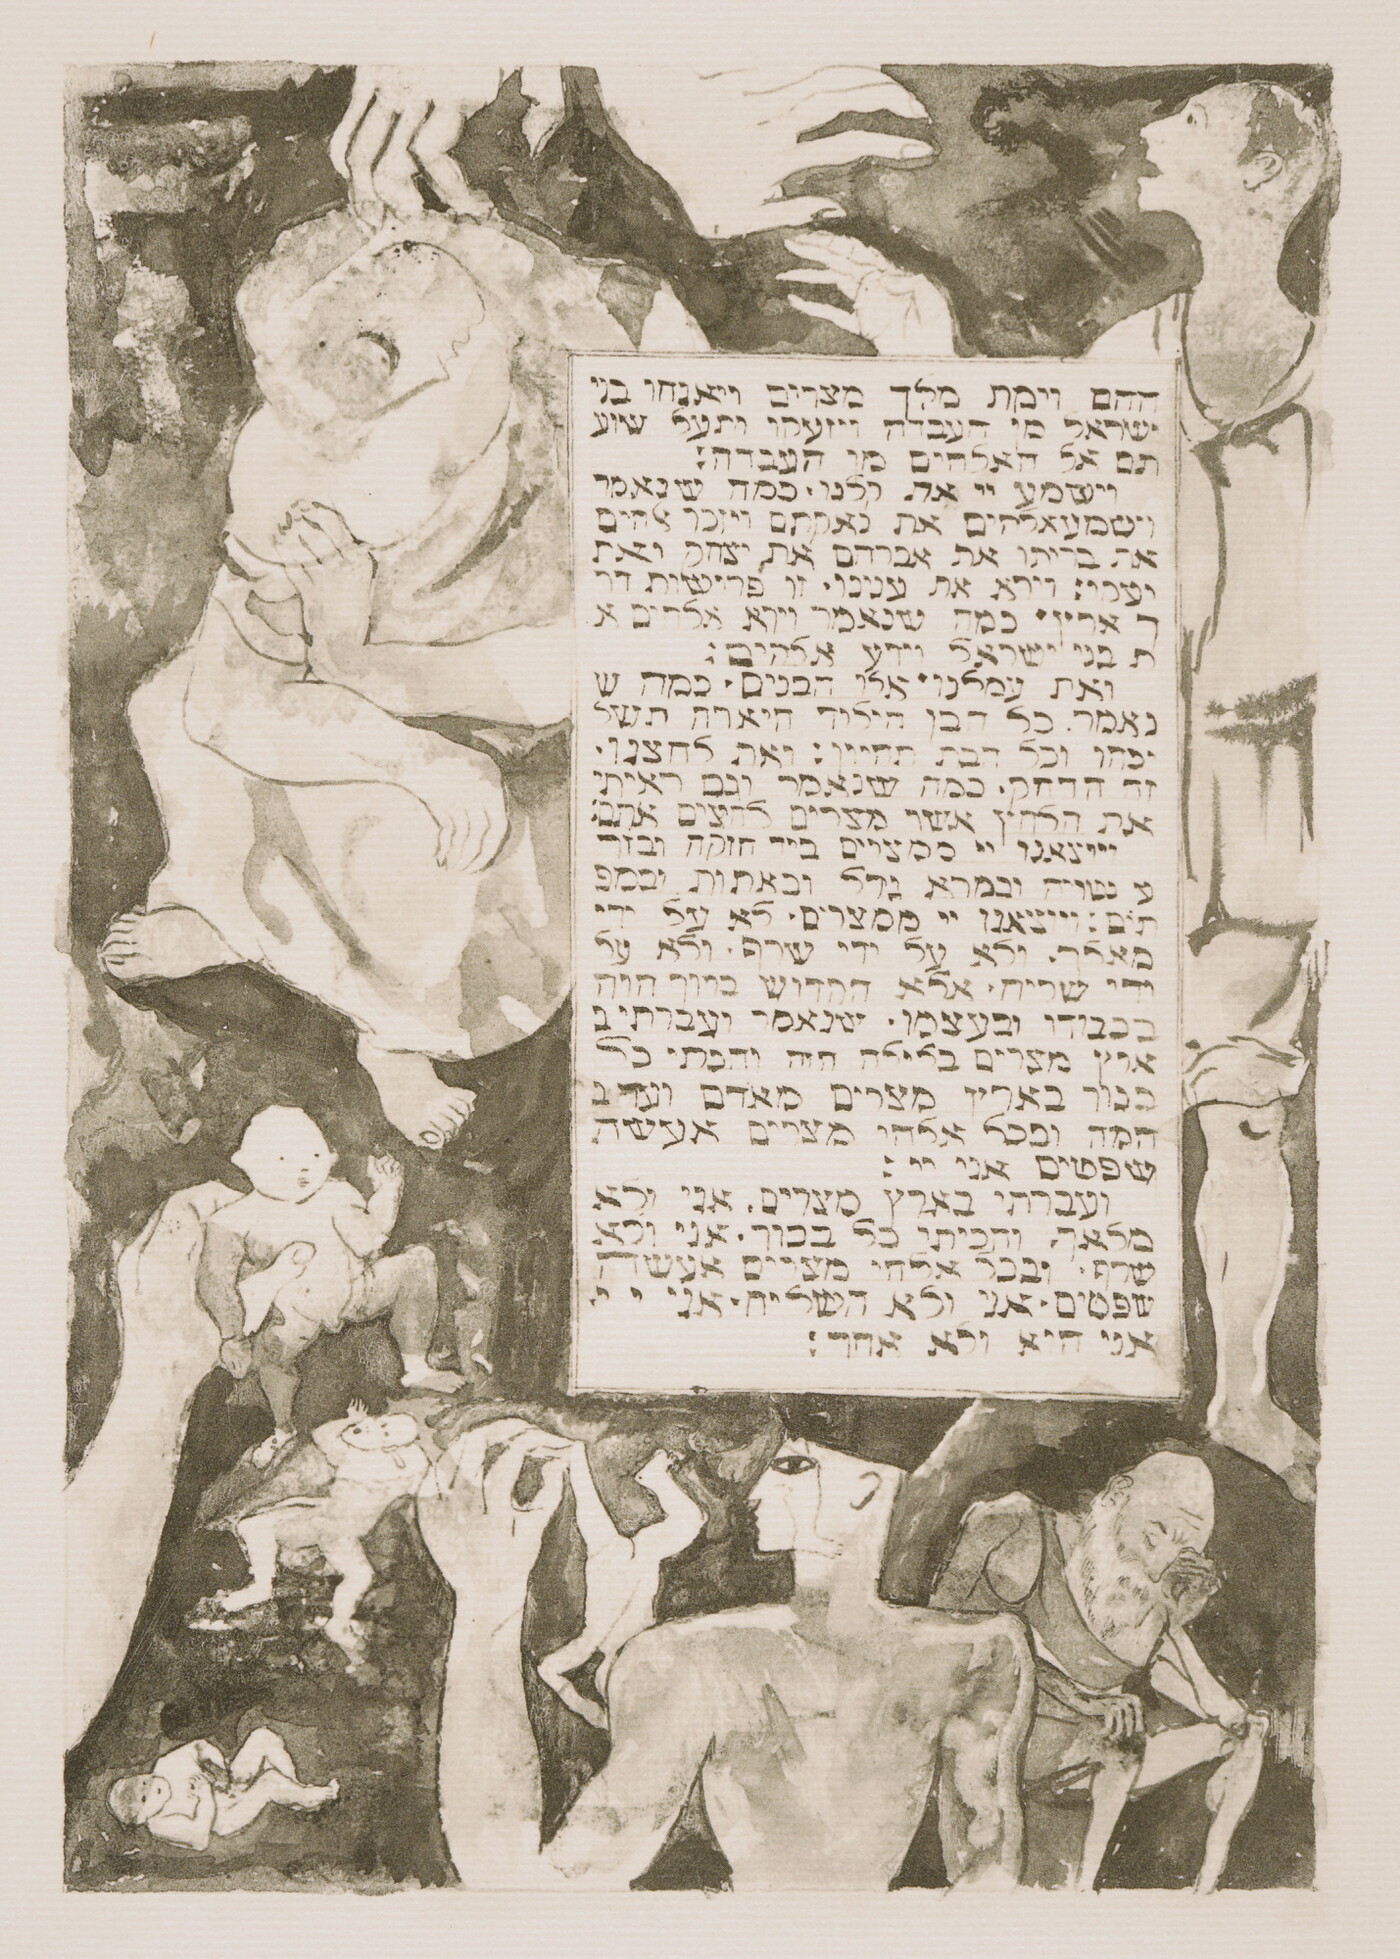 ההם וימת מלך מצרים ויאנחו בני
ישראל מן העבדה ויזעקו ותעל שוע
תם אל האלהים מן העבדה:
וישמע יי את קלנו· כמה שנאמר
וישמע אלהים את נאקתם ויזכר אלהים
את בריתו את אברהם את יצחק ואת
יעקב: וירא את ענינו· זו פרישות דר
ך ארץ· כמה שנאמר וירא אלהים א
ת בני ישראל וידע אלהים:
ואת עמלנו· אלו הבנים· כמה ש
נאמר· כל הבן הילוד היארה תשל
יכהו וכל הבת תחיון: ואת לחצנו·
זה הדחק· כמה שנאמר וגם ראיתי
את הלחץ אשר מצרים לחצים אתם:
ויוצאנו יי ממצרים ביד חזקה ובזר
ע נטויה ובמרא גדל ובאתות ובמפ
תים: ויוצאנו יי ממצרים· לא על ידי
מאלך· ולא על ידי שרף· ולא על
ידי שליח· אלא הקדוש ברוך הוא
בכבודו ובעצמו· שנאמר ועברתי ב
ארץ מצרים בלילה הזה והכתי כל
בכור בארץ מצרים מאדם ועד ב
המה ובכל אלהי מצרים אעשה
שפטים אני יי:
ועברתי בארץ מצרים· אני ולא
מלאך· והכיתי כל בכור· אני ולא
שרף· ובכל אלהי מצרים אעשה
שפטים· אני ולא השליח· אני יי
אני הוא ולא אחר: